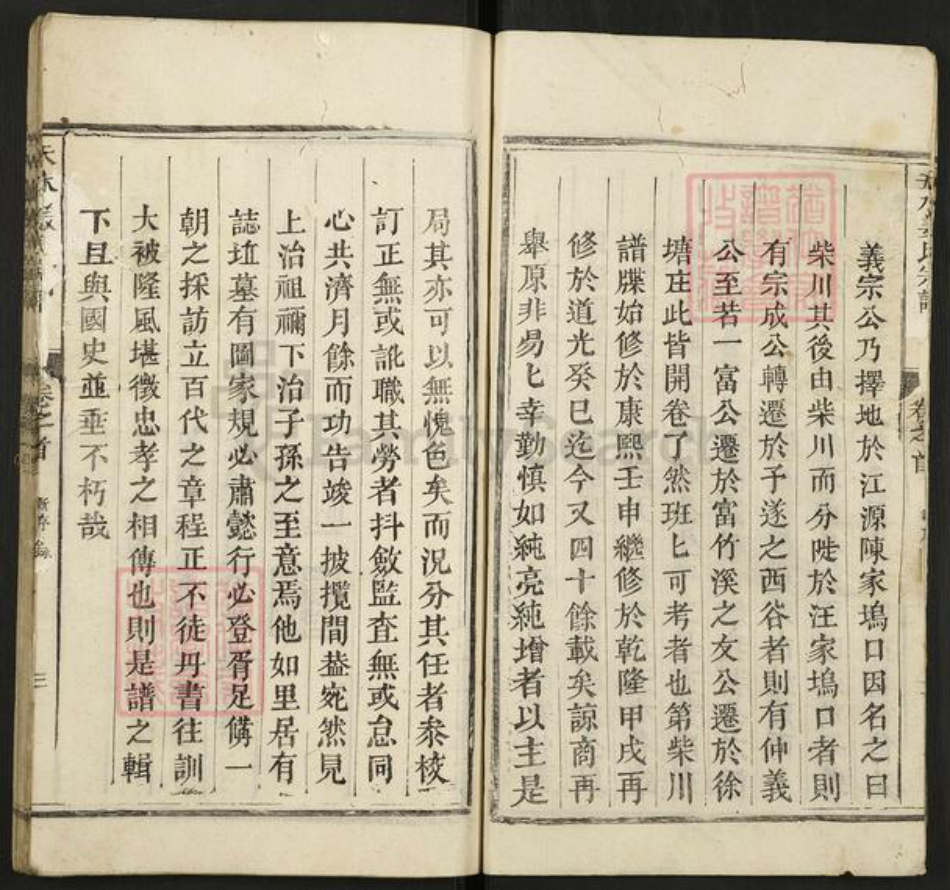 義宗公乃擇地於江源陳家塢口因名之曰
柴川其後由柴川而分陡於汪家塢口者則
有宗成公轉遷於子遂之西谷者則有仲義
公至若一富公遷於富竹溪之友公遷於徐
塘庄此皆開卷了然班匕可考者也第柴川
譜牒始修於康熙壬申繼修於乾隆甲戌再
修於道光癸巳迄今又四十餘載矣諒商再
舉原非易匕幸勤慎如純亮純增者以主是
卷之首
局其亦可以無愧色矣而況分其任者叅校
訂正無或訛職其勞者抖斂監査無或怠同
心共濟月餘而功告竣一披攬間葢宛然見
上治祖禰下治子孫之至意焉他如里居有
誌坵墓有圖家規必肅懿行必登胥足備一
朝之採訪立百代之章程正不徒丹書往訓
大被隆風堪徵忠孝之相傳也則是譜之輯
下且與國史並垂不朽哉
卷之首
三
FamilySearch